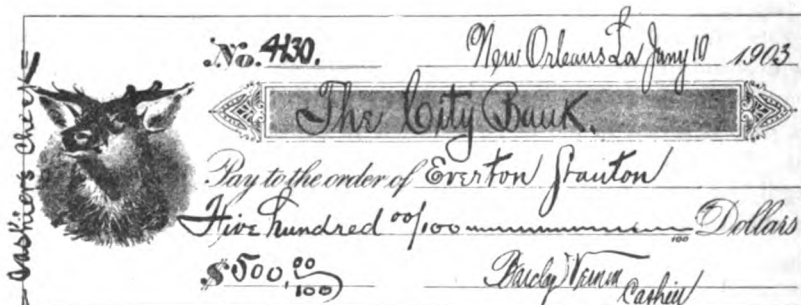 Cashiers Check
No. 4130. New Orleans La Jany 10 1903
The City Bank.
Pay to the order of Everton Stanton
Five hundred 00/100 100 Dollars
$500.00/100 Cashier